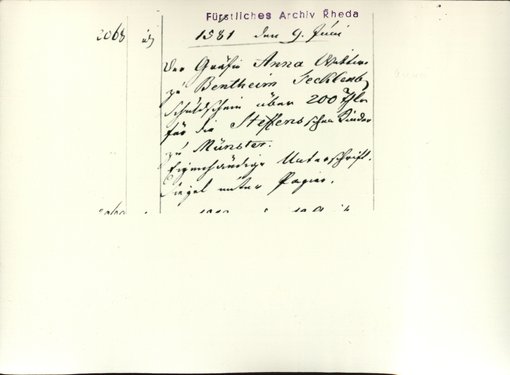 Fürstliches Archiv Rheda
2068 1581 den 9. Juni
Der Gräfin Anna Wittwe
zu Bentheim Tecklenb.
Schuldschein über 200 Thlr
für die Steffensschen Kinder
zu Münster.
Eigenhändige Unterschrift.
Siegel unter Papier.